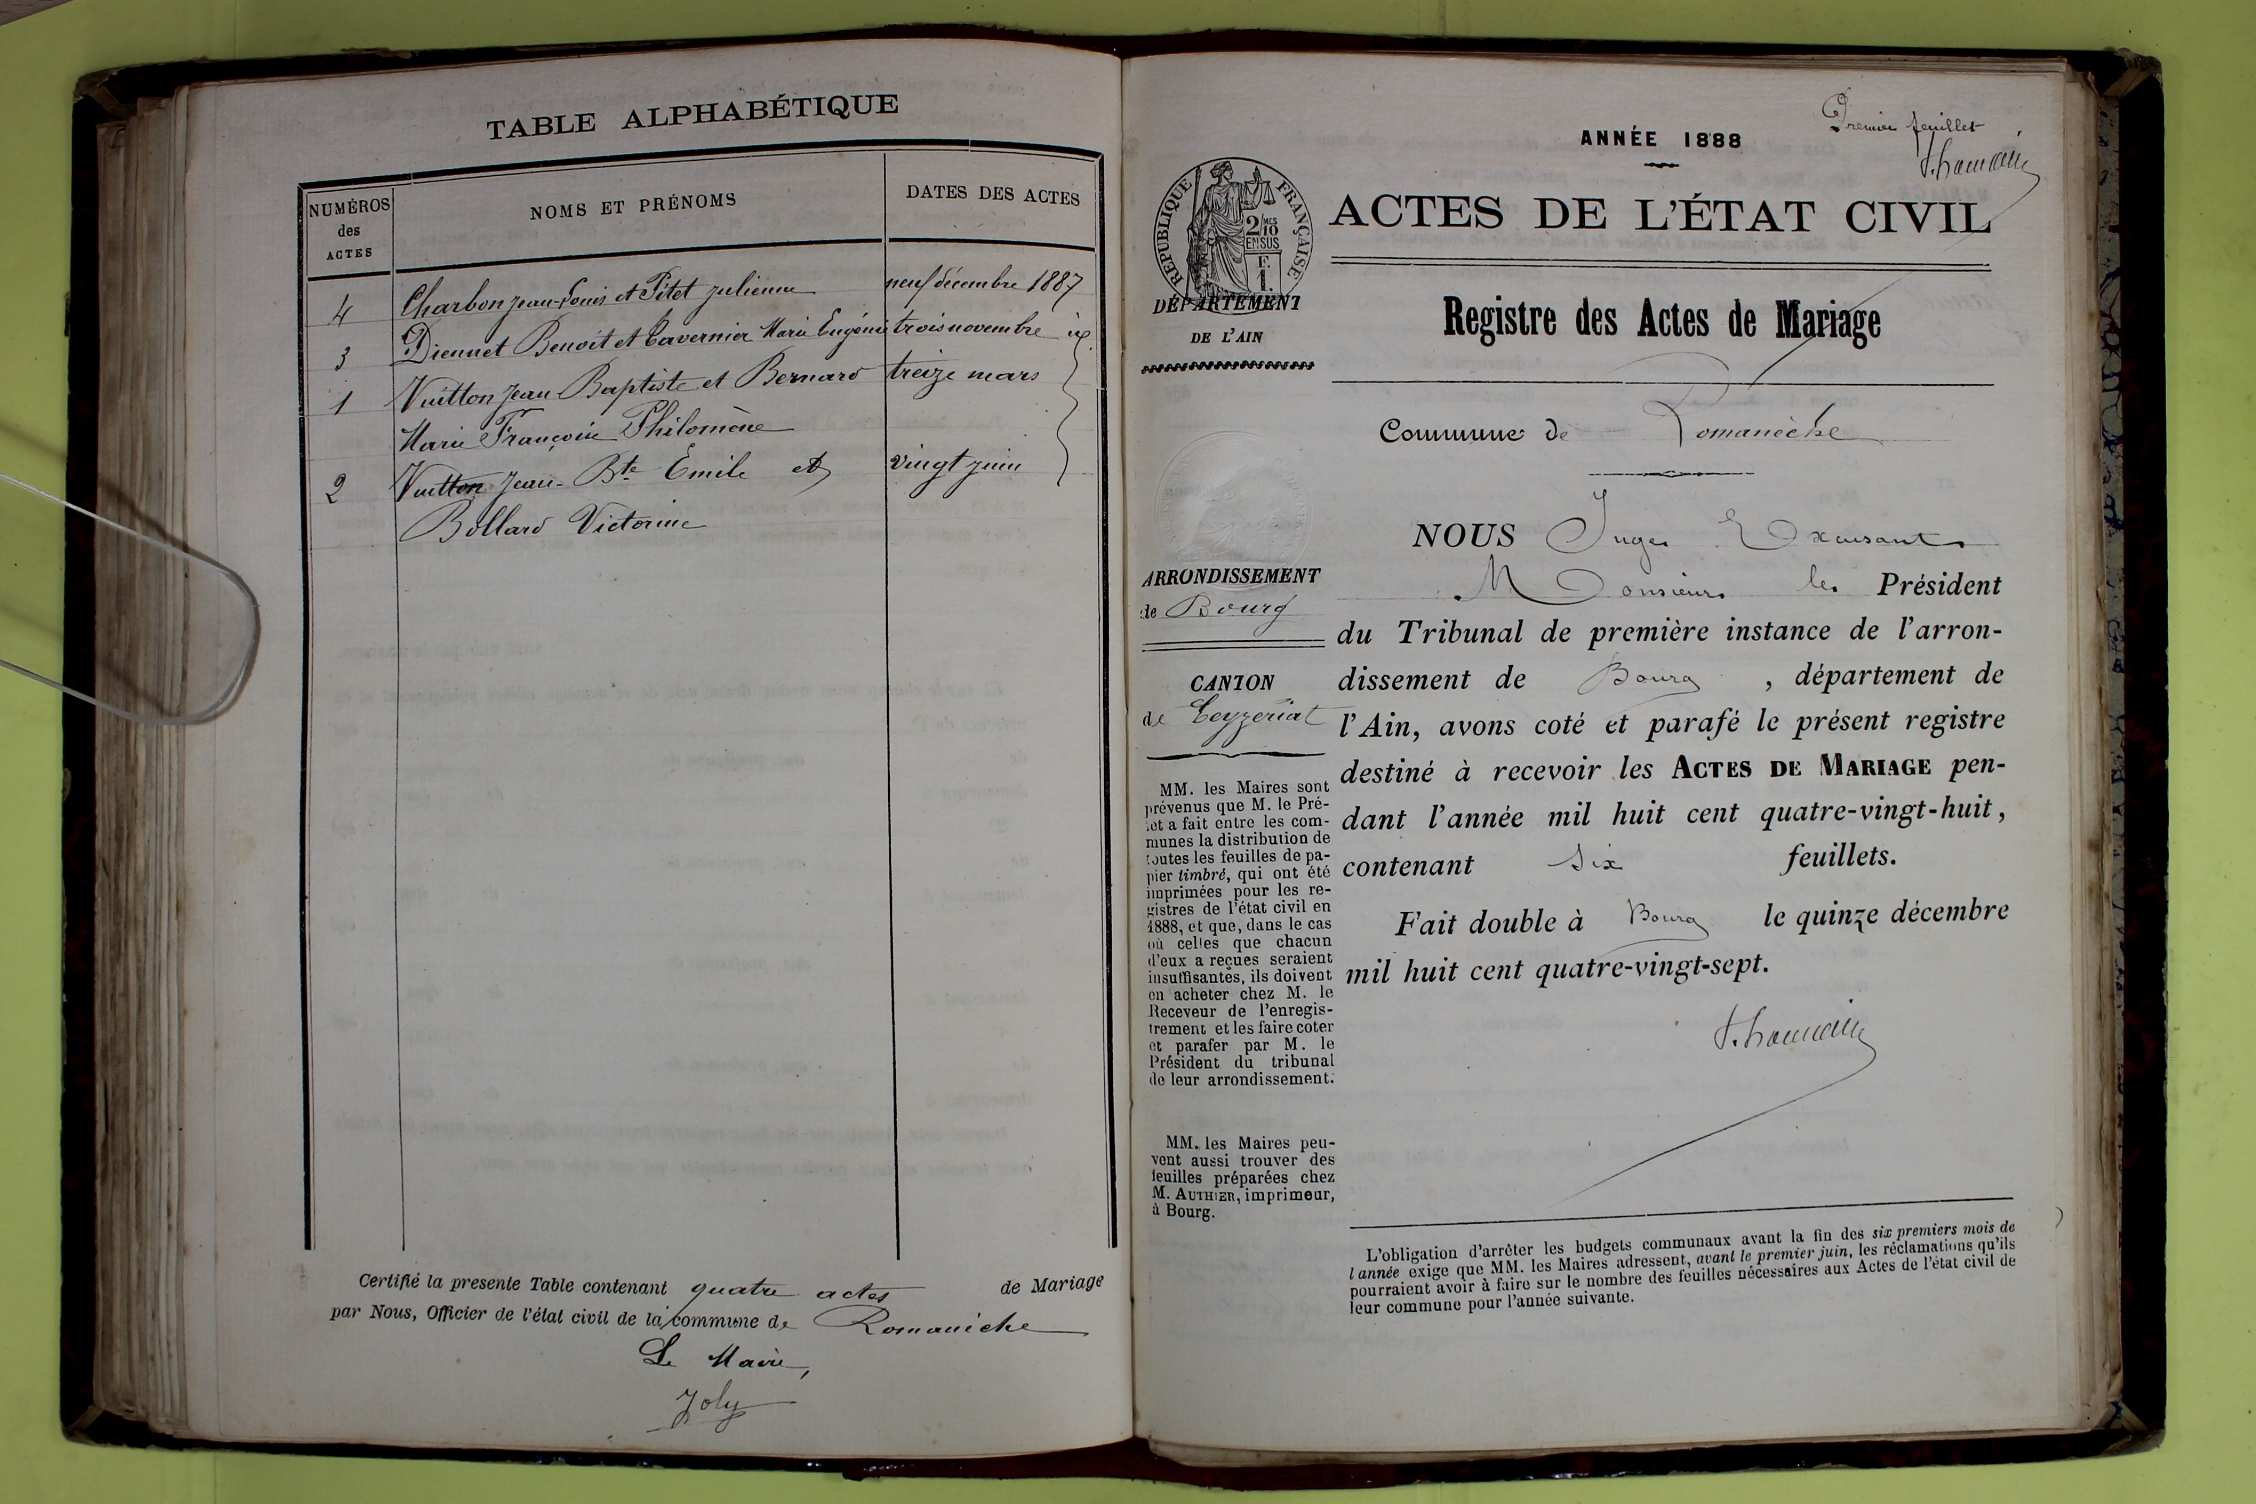 TABLE ALPHABÉTIQUE
NUMÉROS des ACTES
NOMS ET PRÉNOMS
DATES DES ACTES
4 Charbon Jean-Louis et Pitet Julienne neuf décembre 1887
3 Diennet Benoît et Tavernier Marie Eugénie trois novembre id
1 Vuitton Jean Baptiste et Bernard treize mars
Marie Françoise Philomène
2 Vuitton Jean-Bte Emile et vingt juin
Bollard Victorine
Certifié la presente Table contenant quatre actes de Mariage
par Nous, Officier de l'état civil de la commune de Romanèche
Le Maire,
Joly
Premier feuillet
ANNÉE 1888
ACTES DE L'ÉTAT CIVIL
RÉPUBLIQUE FRANÇAISE
2/10 MES
EN SUS
F.
1.
DÉPARTEMENT
DE L'AIN
Registre des Actes de Mariage
Commune de Romanèche
ARRONDISSEMENT
de Bourg
CANTON
de Ceyzériat
MM. les Maires sont
prévenus que M. le Pré-
fet a fait entre les com-
munes la distribution de
toutes les feuilles de pa-
pier timbré, qui ont été
imprimées pour les re-
gistres de l'état civil en
1888, et que, dans le cas
où celles que chacun
d'eux a reçues seraient
insuffisantes, ils doivent
en acheter chez M. le
Receveur de l'enregis-
trement et les faire coter
et parafer par M. le
Président du tribunal
de leur arrondissement.
MM. les Maires peu-
vent aussi trouver des
feuilles préparées chez
M. AUTHIER, imprimeur,
à Bourg.
NOUS Juge
Monsieur le Président
du Tribunal de première instance de l'arron-
dissement de Bourg, département de
l'Ain, avons coté et parafé le présent registre
destiné à recevoir les ACTES DE MARIAGE pen-
dant l'année mil huit cent quatre-vingt-huit,
contenant six feuillets.
Fait double à Bourg le quinze décembre
mil huit cent quatre-vingt-sept.
L'obligation d'arrêter les budgets communaux avant la fin des six premiers mois de
l'année exige que MM. les Maires adressent, avant le premier juin, les réclamations qu'ils
pourraient avoir à faire sur le nombre des feuilles nécessaires aux Actes de l'état civil de
leur commune pour l'année suivante.